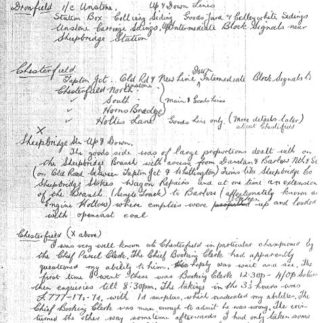 Dronfield i/c Unstone. Up & Down Lines
Station Box Colliery Siding Goods Yard & Colley white Sidings
Unstone Carriage Sidings, Intermediate Block Signals near
Sheepbridge Station
Chesterfield Down
Tapton Jct. Old Rd & New Line Intermediate Block Signals to
Chesterfield North
" South } Main & Goods lines
" Horns Bridge
" Hollis Lane Goods lines only (
X
Sheepbridge Stn Up & Down.
The goods side was of large proportions dealt with on
the Sheepbridge Branch with access from Dunston & Barlow
(on Old Road between Tapton Jct & Whittington) Firms like Sheepbridge Co
Sheepbridge Stokes & Wagon Repairs and at one time an extension
of the Branch (Single Track) to Barlow (affectionately known as
Engine Hollow) where empties were up and loaded
with opencast coal
Chesterfield (X above)
I was very well known at Chesterfield in particular championed by
the Chief Parcel Clerk, The Chief Booking Clerk had apparently
questioned my ability to him, his reply was wait and see. The
first time I went there was Booking Clerk 12:30p - 4/0p
then enquiries till 8:30pm. The takings in the 3½ hours was
£777-19-7d, with 1d surplus, which indicated my ability, The
Chief Booking Clerk was man enough to admit he was wrong. She
turned the other way sometime afterwards I had only taken some